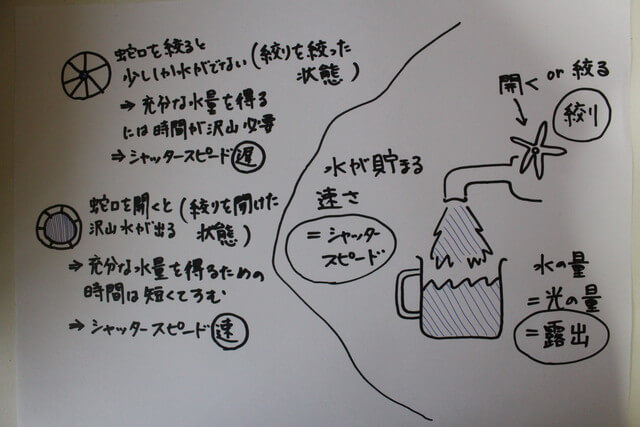 蛇口を絞ると
少ししか水がでない(絞りを絞った
状態)
⇒ 充分な水量を得る
には時間が沢山必要
⇒ シャッタースピード遅
蛇口を開くと(絞りを開けた
沢山水が出る 状態)
⇒ 充分な水量を得るための
時間は短くてすむ
⇒ シャッタースピード速
水が貯まる
速さ
=シャッター
スピード
開く or 絞る
絞り
水の量
=光の量
=露出